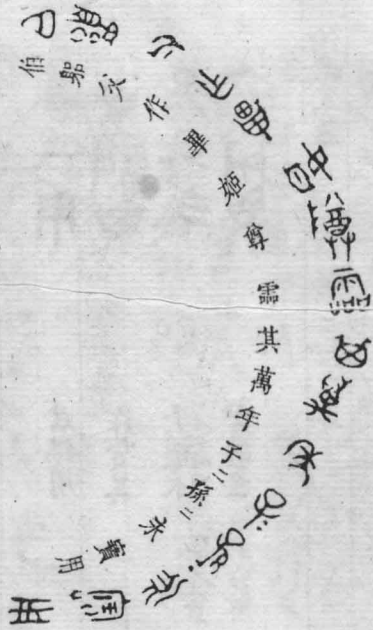 伯父作畢姬尊霝其萬年子二孫二永寶用